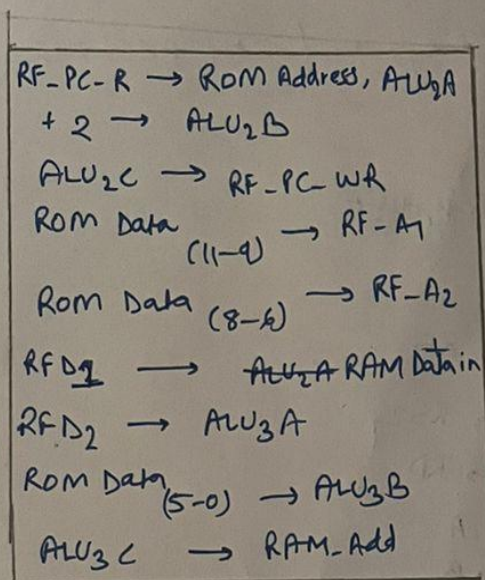 RF_PC_R → ROM Address, ALU2A
+ 2 → ALU2B
ALU2C → RF_PC_WR
ROM Data (11-9) → RF-A1
ROM Data (8-6) → RF_A2
RFD1 → ALU2A RAM Data in
RFD2 → ALU3A
ROM Data (5-0) → ALU3B
ALU3C → RAM_Add